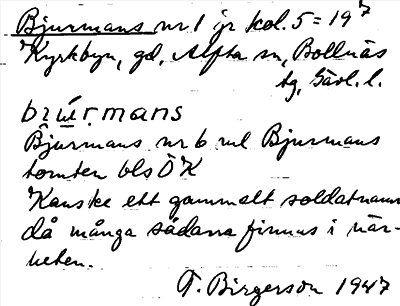 Bjurmans nr 1 jr kol. 5 = 19 7
Kyrkbyn, gd, Alfta sn, Bollnäs
tg, Gävl. l.
bɪu̇rmans
Bjurmans nr 6 vml Bjurmans
tomten bls Ö K
Kanske ett gammalt soldatnamn
då många sådana finnas i när-
heten.
T. Birgerson 1947